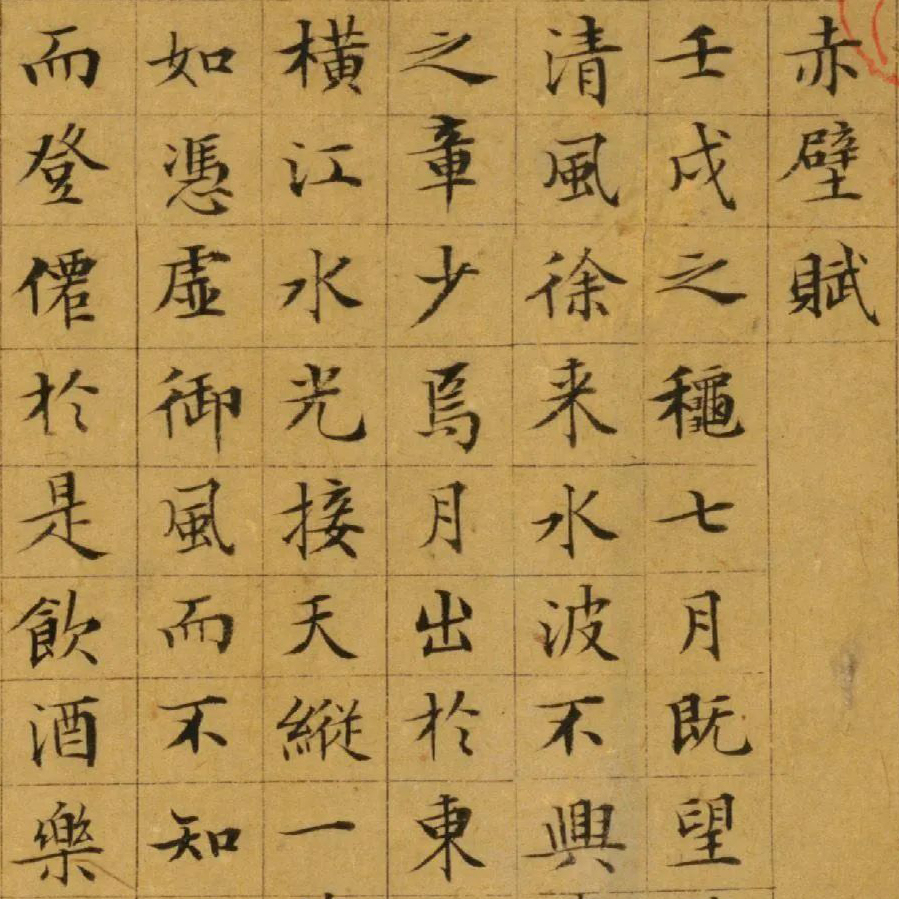 赤壁賦
壬戌之龝七月既望
清風徐来水波不興
之章少焉月出於東
橫江水光接天縱一
如憑虛御風而不知
而登僊於是飲酒樂